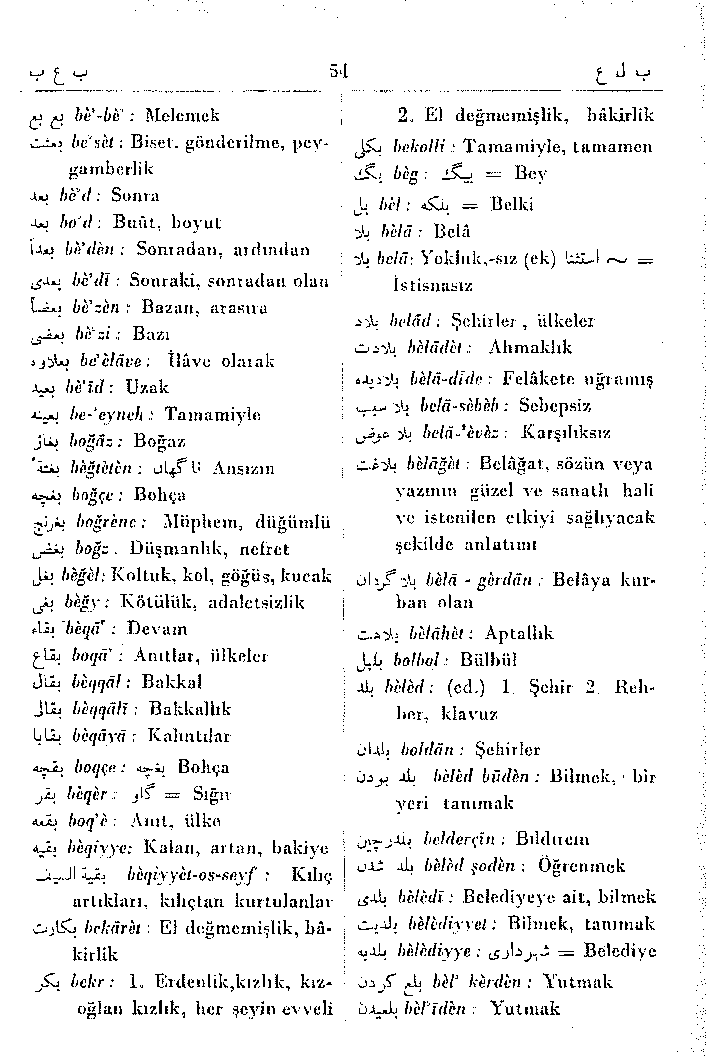 ب ع ب 54 ب ل ع
بع بع bè'-bè' : Melemek
بعثت be'sèt : Biset. gönderilme, pey-
gamberlik
بعد bè'd : Sonra
بعد bo'd : Buût, boyut
بعداً bè'dèn : Sonradan, ardından
بعدی bè'dī : Sonraki, sonradan olan
بعضاً bè'zèn : Bazan, arasıra
بعضی bè'zi : Bazı
بعلاوه be'èlāve : İlâve olarak
بعید bè'īd : Uzak
بعینه be-'eyneh : Tamamiyle
بغاز boğāz : Boğaz
بغتة bèğtètèn : ناگهان Ansızın
بغچه boğçe : Bohça
بغرنج boğrènc : Müphem, düğümlü
بغض boğz . Düşmanlık, nefret
بغل bèğèl: Koltuk, kol, göğüs, kucak
بغی bèğy : Kötülük, adaletsizlik
بقاء bèqā' : Devam
بقاع boqā' : Anıtlar, ülkeler
بقال bèqqāl : Bakkal
بقالی bèqqālī : Bakkallık
بقایا bèqāyā : Kalıntılar
بقچه boqçe : بغچه Bohça
بقر bèqèr : گاو = Sığır
بقعه boq'è : Anıt, ülke
بقیه bèqiyye: Kalan, artan, bakiye
بقیة السیف bèqiyyèt-os-seyf : Kılıç
artıkları, kılıçtan kurtulanlar
بکارت bekārèt : El değmemişlik, bâ-
kirlik
بکر bekr : 1. Erdenlik,kızlık, kız-
oğlan kızlık, her şeyin evveli
2. El değmemişlik, bâkirlik
بکلی bekolli : Tamamiyle, tamamen
بگ bèg : بیگ = Bey
بل bèl : بلکه = Belki
بلا bèlā : Belâ
بلا belā: Yokluk,-sız (ek) استثنا ~ =
İstisnasız
بلاد belād : Şehirler , ülkeler
بلادت bèlādèt : Ahmaklık
بلادیده bèlā-dīde : Felâkete uğramış
بلا سبب belā-sèbèb : Sebepsiz
بلا عوض belā-'èvèz : Karşılıksız
بلاغت bèlāğèt : Belâğat, sözün veya
yazının güzel ve sanatlı hali
ve istenilen etkiyi sağlıyacak
şekilde anlatımı
بلا گردان bèlā - gèrdān : Belâya kur-
ban olan
بلاهت bèlāhèt : Aptallık
بلبل bolbol : Bülbül
بلد bèlèd : (ed.) 1. Şehir 2. Reh-
ber, klavuz
بلدان boldān : Şehirler
بلد بودن bèlèd būdèn : Bilmek, bir
yeri tanımak
بلدرچین belderçīn : Bıldırcın
بلد شدن bèlèd şodèn : Öğrenmek
بلدی bèlèdī : Belediyeye ait, bilmek
بلدیت bèlèdiyyet : Bilmek, tanımak
بلدیه bèlèdiyye : شهرداری = Belediye
بلع کردن bèl' kèrdèn : Yutmak
بلعیدن bèl'īdèn : Yutmak